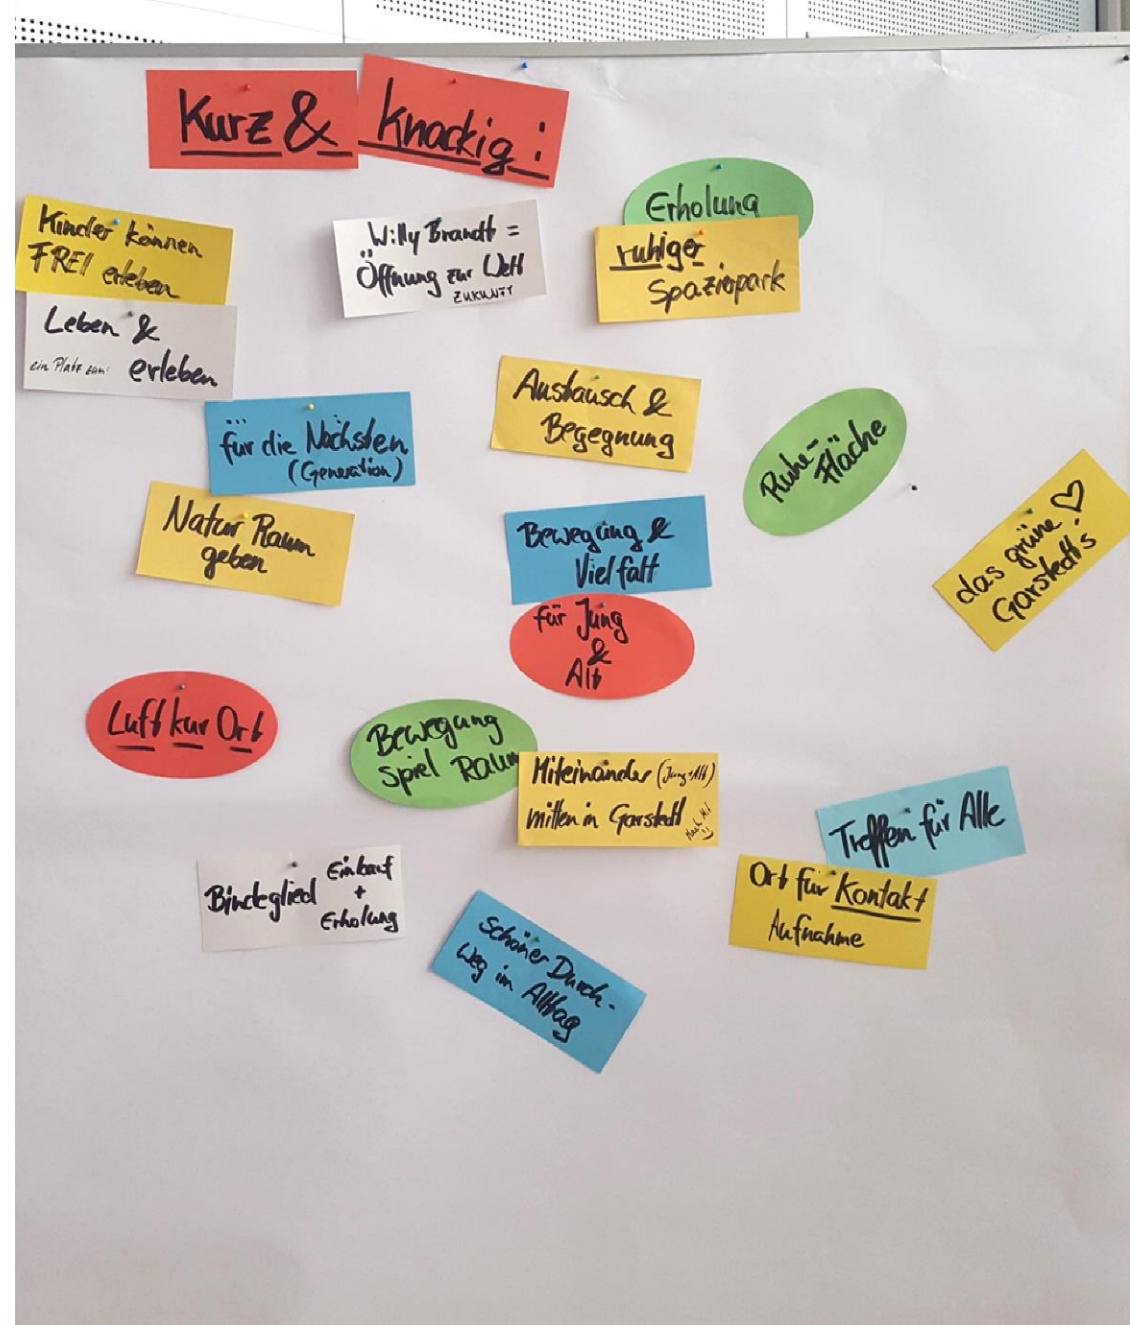 Kurz & knackig:
Kinder können
FREI erleben
Leben &
ein Platz zum: erleben
Willy Brandt =
Öffnung zur Welt
ZUKUNFT
Erholung
ruhiger
Spazierpark
für die Nächsten
(Generation)
Austausch &
Begegnung
Ruhe-
Fläche
Natur Raum
geben
Bewegung &
Vielfalt
für Jung
&
Alt
das grüne ♡
Garstedt's
Luft kur Ort
Bewegung
spiel Raum
Miteinander (Jung+Alt)
mitten in Garstedt
Treffen für Alle
Bindeglied Einkauf
+
Erholung
Ort für Kontakt
Aufnahme
Schöner Durch-
weg im Alltag